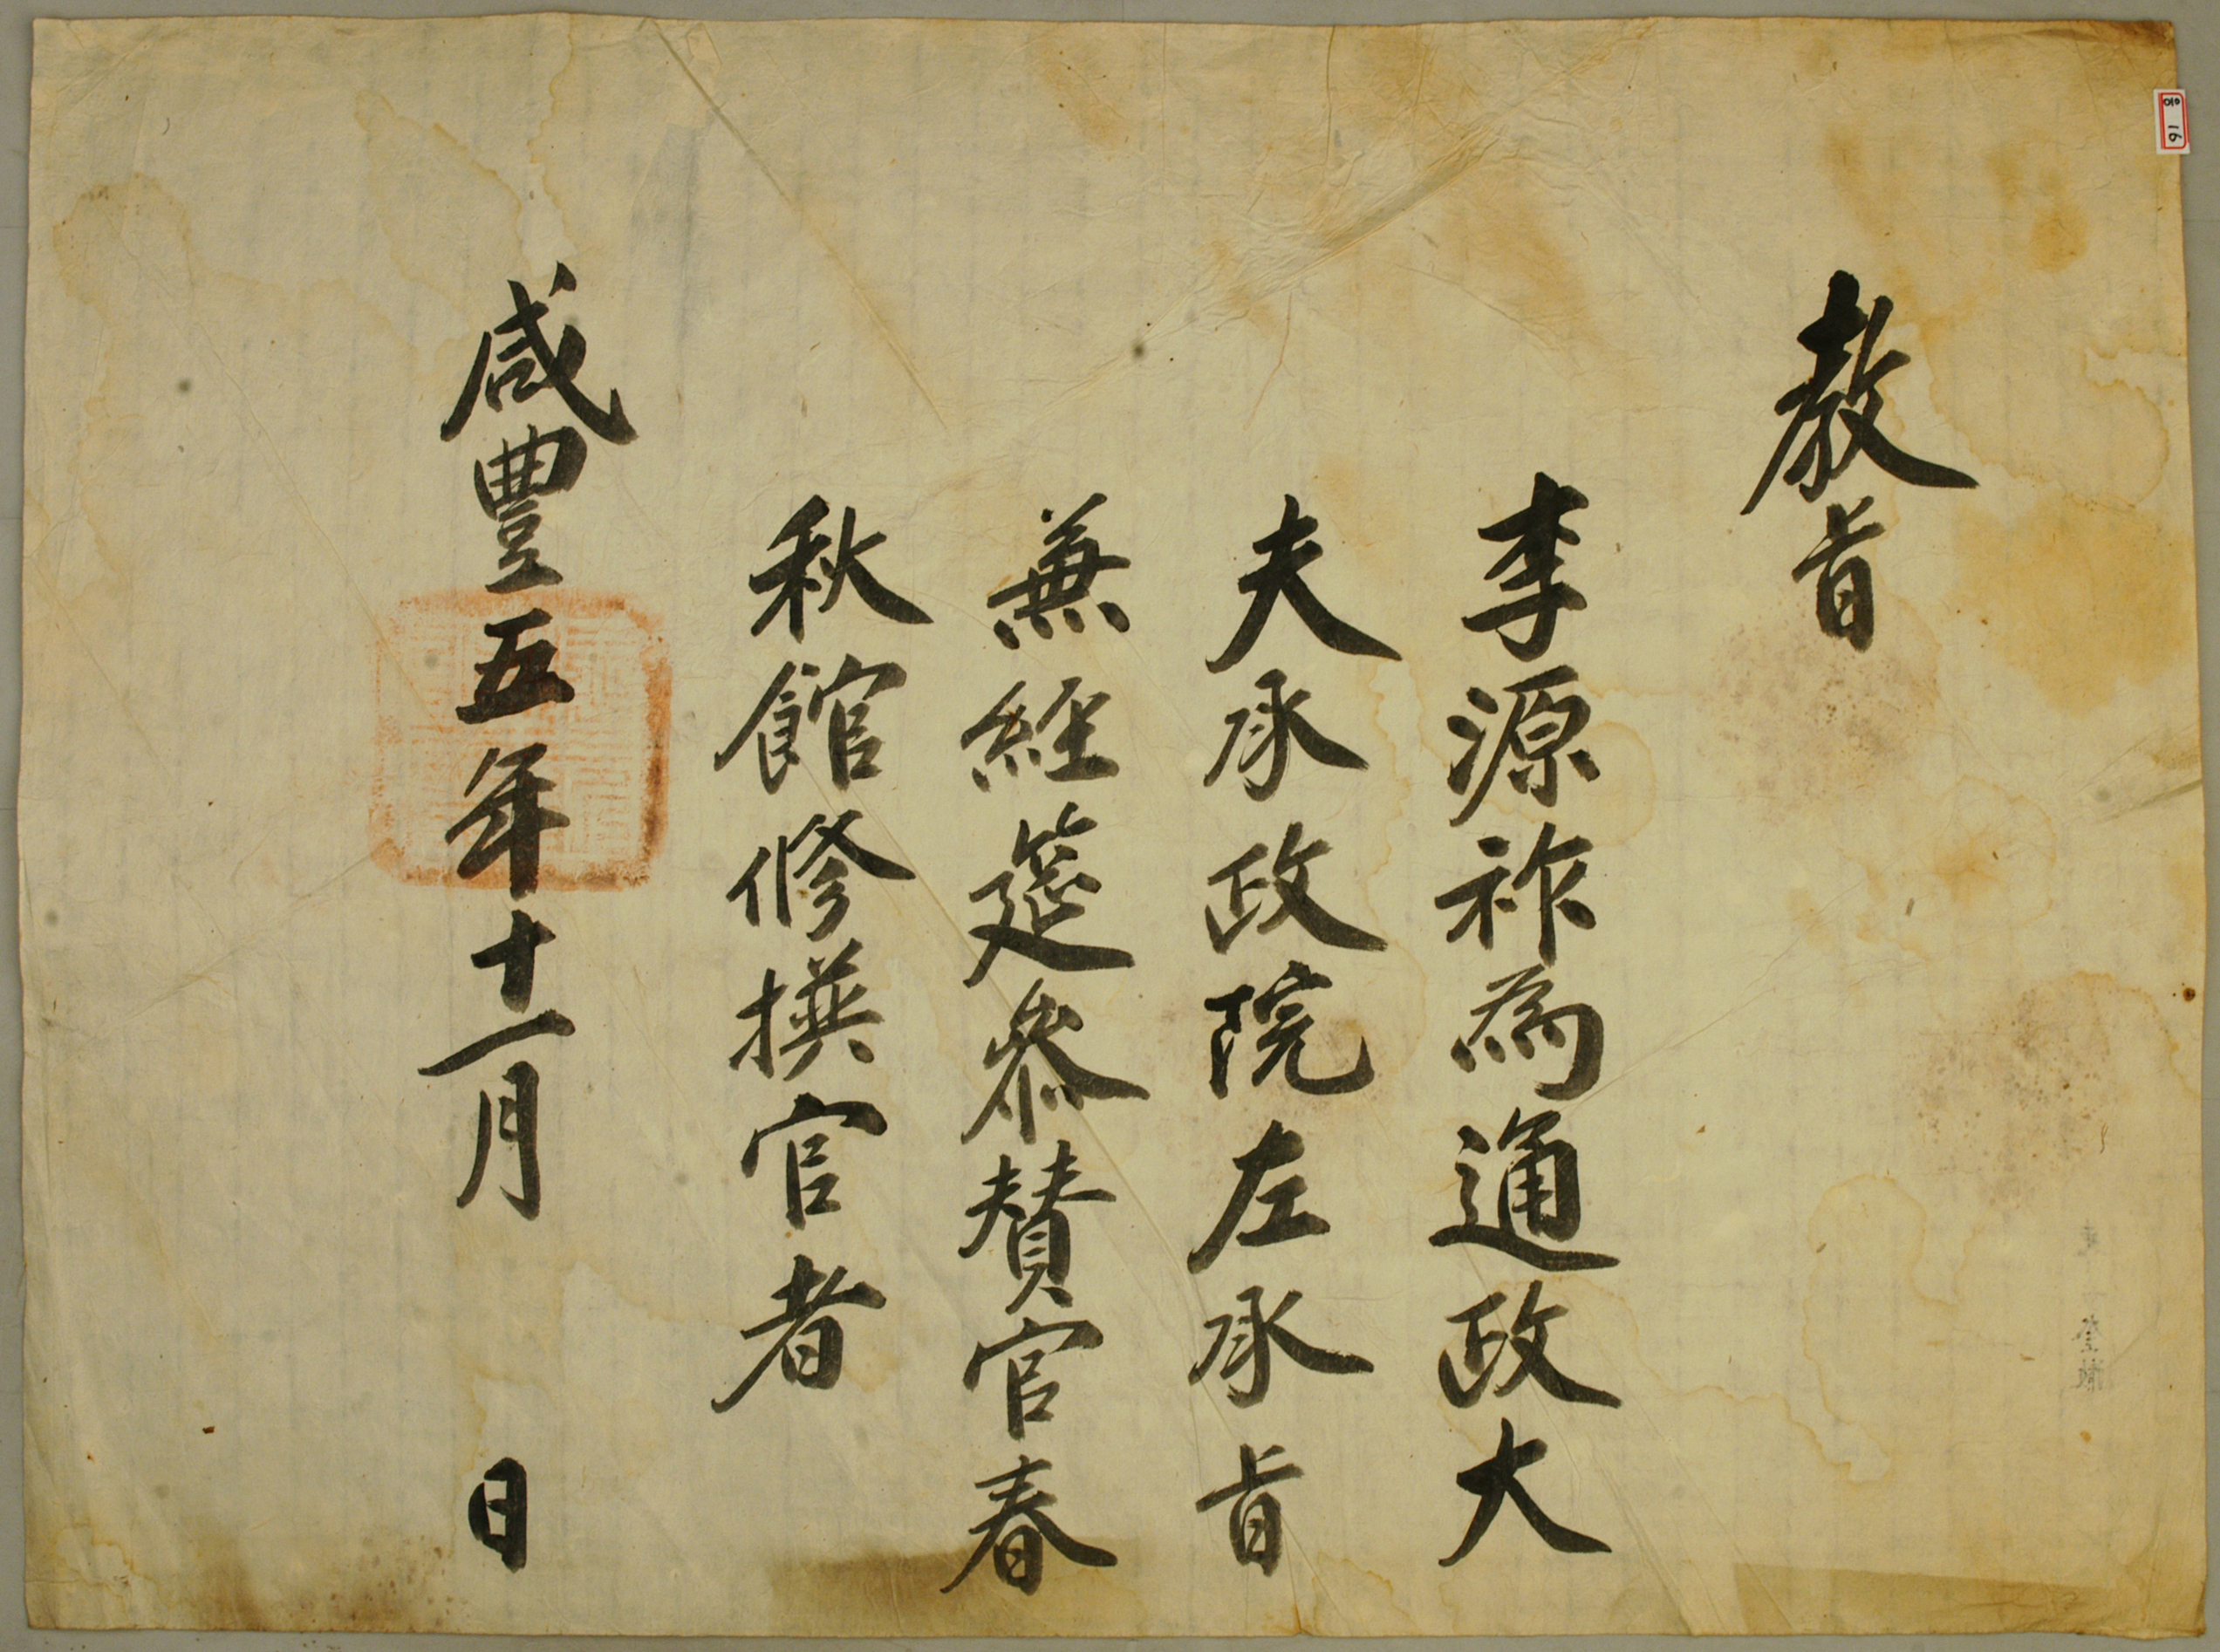 教旨
李源祚為通政大
夫承政院左承旨
兼經筵參贊官春
秋館修撰官者
咸豐五年十一月　日